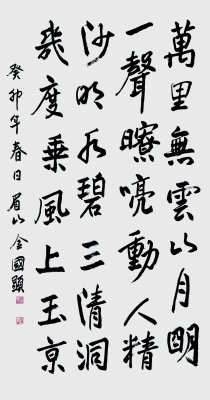 萬里無雲山月明
一聲暸喨動人精
沙明水碧三清洞
幾度乘風上玉京
癸卯年春日眉山金國顯